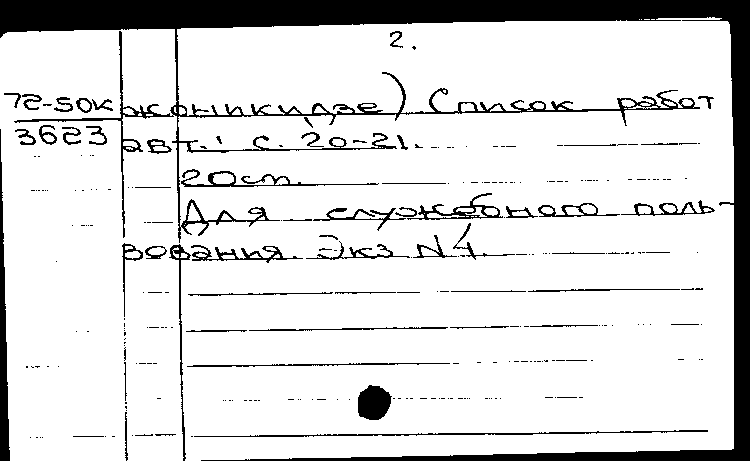 2.
72-50к жоникидзе) Список работ
3623 авт.: с. 20-21.
20см.
Для служебного поль-
зования. Экз N4.